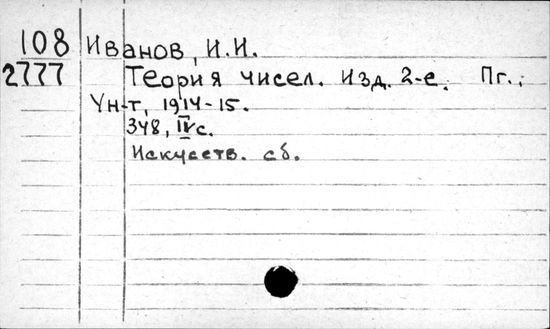 108 Иванов, И.И.
2777 Теория чисел. Изд. 2-е. Пг.,
Ун-т, 1914-15.
348, IV с.
Искусств. сб.